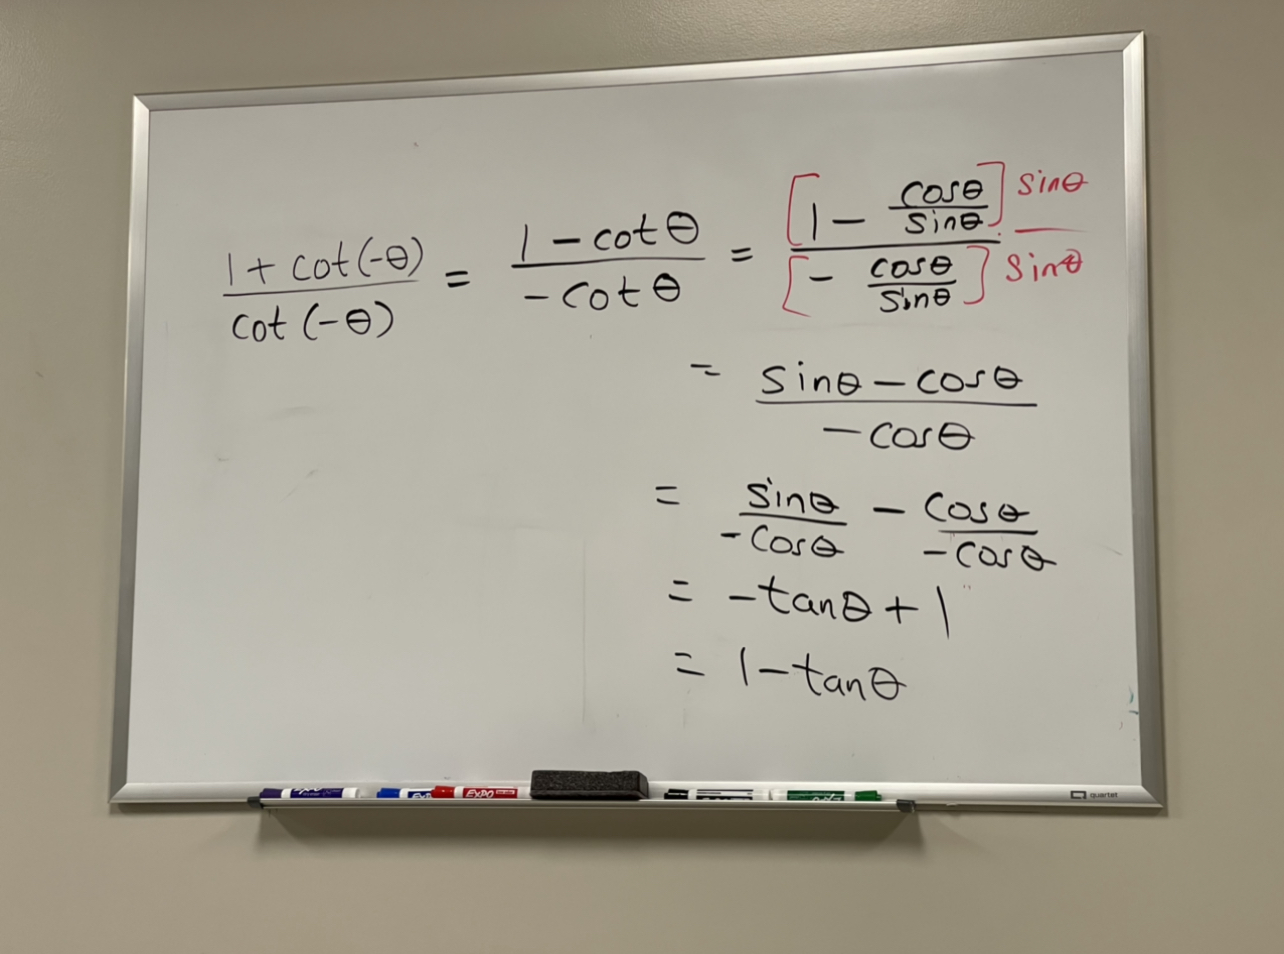 (1 + cot(-θ))/(cot(-θ)) = (1 - cot θ)/(-cot θ) = ([1 - cosθ/sinθ] sinθ)/([- cosθ/sinθ] sinθ)
= (sinθ - cosθ)/(-cosθ)
= sinθ/(-cosθ) - cosθ/(-cosθ)
= -tanθ + 1
= 1 - tanθ
EXPO
quartet